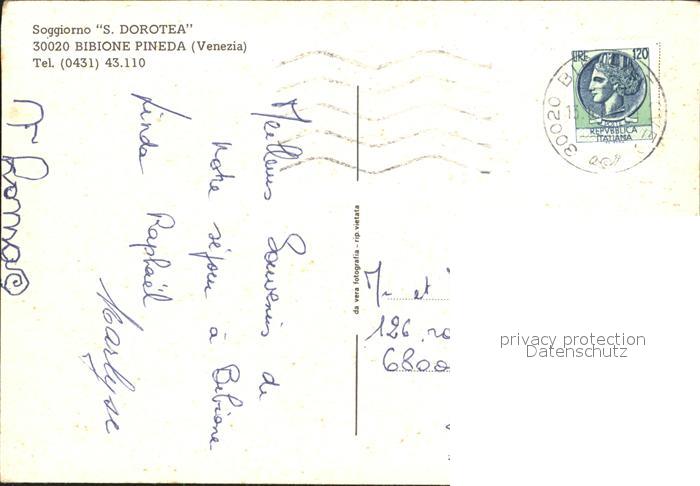 Soggiorno "S. DOROTEA"
30020 BIBIONE PINEDA (Venezia)
Tel. (0431) 43.110
Meilleurs Souvenirs de
notre séjour à Bibione
Linda Raphaël
Marlyse
da vera fotografia - rip. vietata
LIRE 120
POSTE
REPVBBLICA
ITALIANA
30020 B
M. et
126, ro
6800
privacy protection
Datenschutz